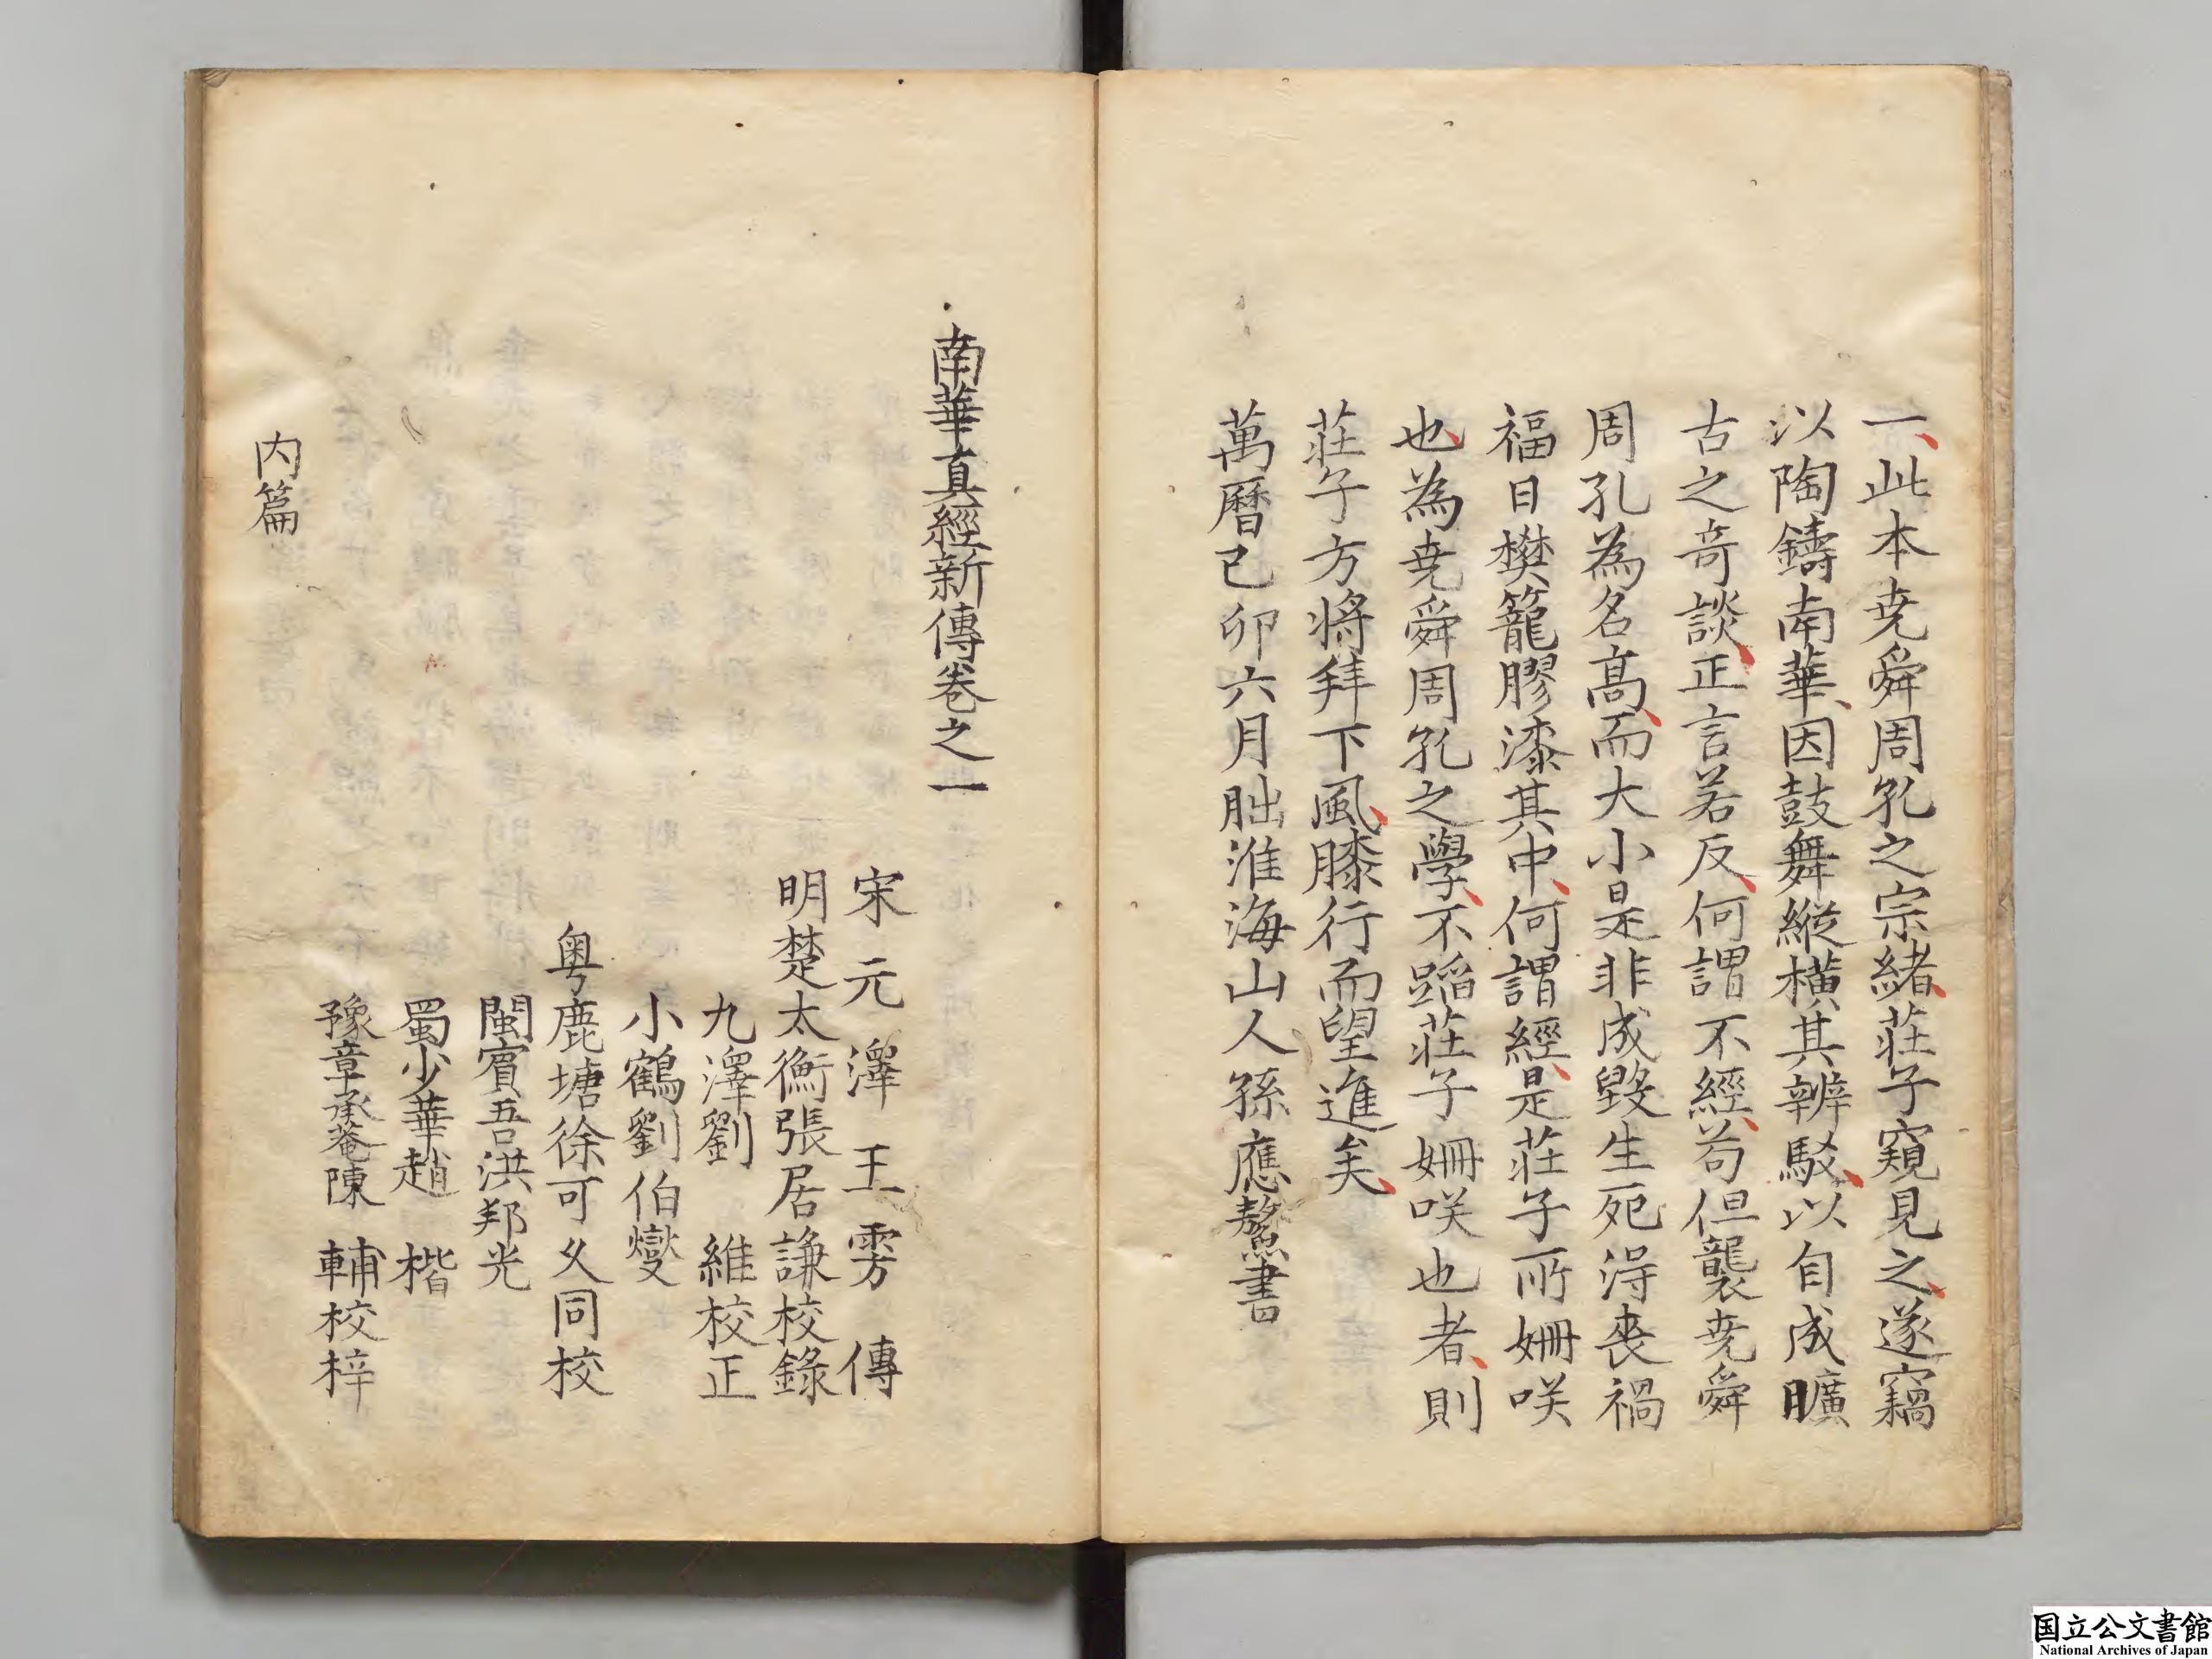 一此本尭舜周孔之宗緒荘子窺見之遂竊
以陶鑄南華因鼓舞縱橫其辨駁以自成曠
古之奇談正言若反何謂不經茍但襲尭舜
周孔為名高而大小是非成毀生死淂喪禍
福日樊籠膠漆其中何謂經是荘子所姍咲
也為尭舜周孔之學不蹈荘子姍咲也者則
荘子方將拜下風膝行而望進矣
萬曆己卯六月朏淮海山人孫應鰲書
南華真經新傳卷之一
宋元澤王雱傳
明楚太衡張居謙校錄
九澤劉維校正
小鶴劉伯燮
粤鹿塘徐可久同校
閩賓吾洪邦光
蜀少華趙楷
豫章承菴陳輔校梓
内篇
国立公文書館
National Archives of Japan